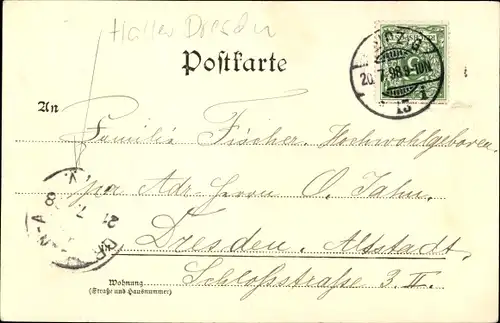 Haller Dresden
Postkarte
An
Familie Fischer, Hochwohlgeboren,
per Adr. Herrn O. Jahn,
Dresden, Altstadt,
Schloßstraße 3. II.
Wohnung
(Straße und Hausnummer)
LEIPZIG
20.7.98.9-10N.
13 1
21 7
8